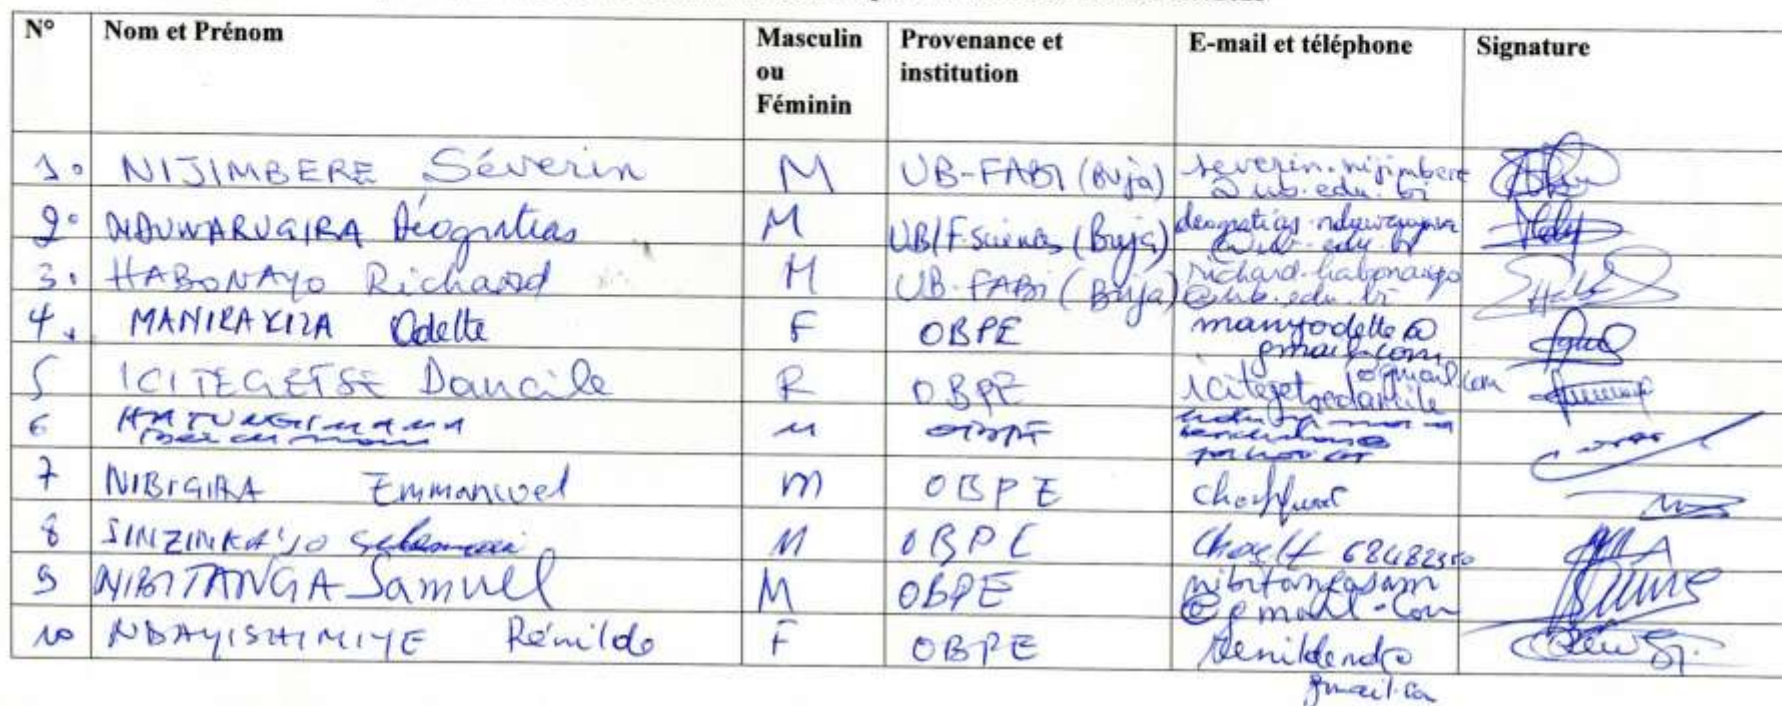 N° Nom et Prénom Masculin ou Féminin Provenance et institution E-mail et téléphone Signature
1. NIJIMBERE Séverin M UB-FABI (Buja) severin.nijimbere @ub.edu.bi
2. NDUWARUGIRA Déogratias M UB/F.Sciences (Buja) deogratias.nduwarugira @ub.edu.bi
3. HABONAYO Richard M UB-FABI (Buja) richard.habonayo @ub.edu.bi
4. MANIRAKIZA Odette F OBPE manyodette@ gmail.com
5 ICITEGETSE Dancile F OBPE icitegetsedancile @gmail.com
6 HATUNGIMANA M OBPE
7 NIBIGIRA Emmanuel M OBPE chauffeur
8 SINZINKAYO M OBPE 68482350
9 NIBITANGA Samuel M OBPE nibitangasam @gmail.com
10 NDAYISHIMIYE Rénilde F OBPE renildend@ gmail.co